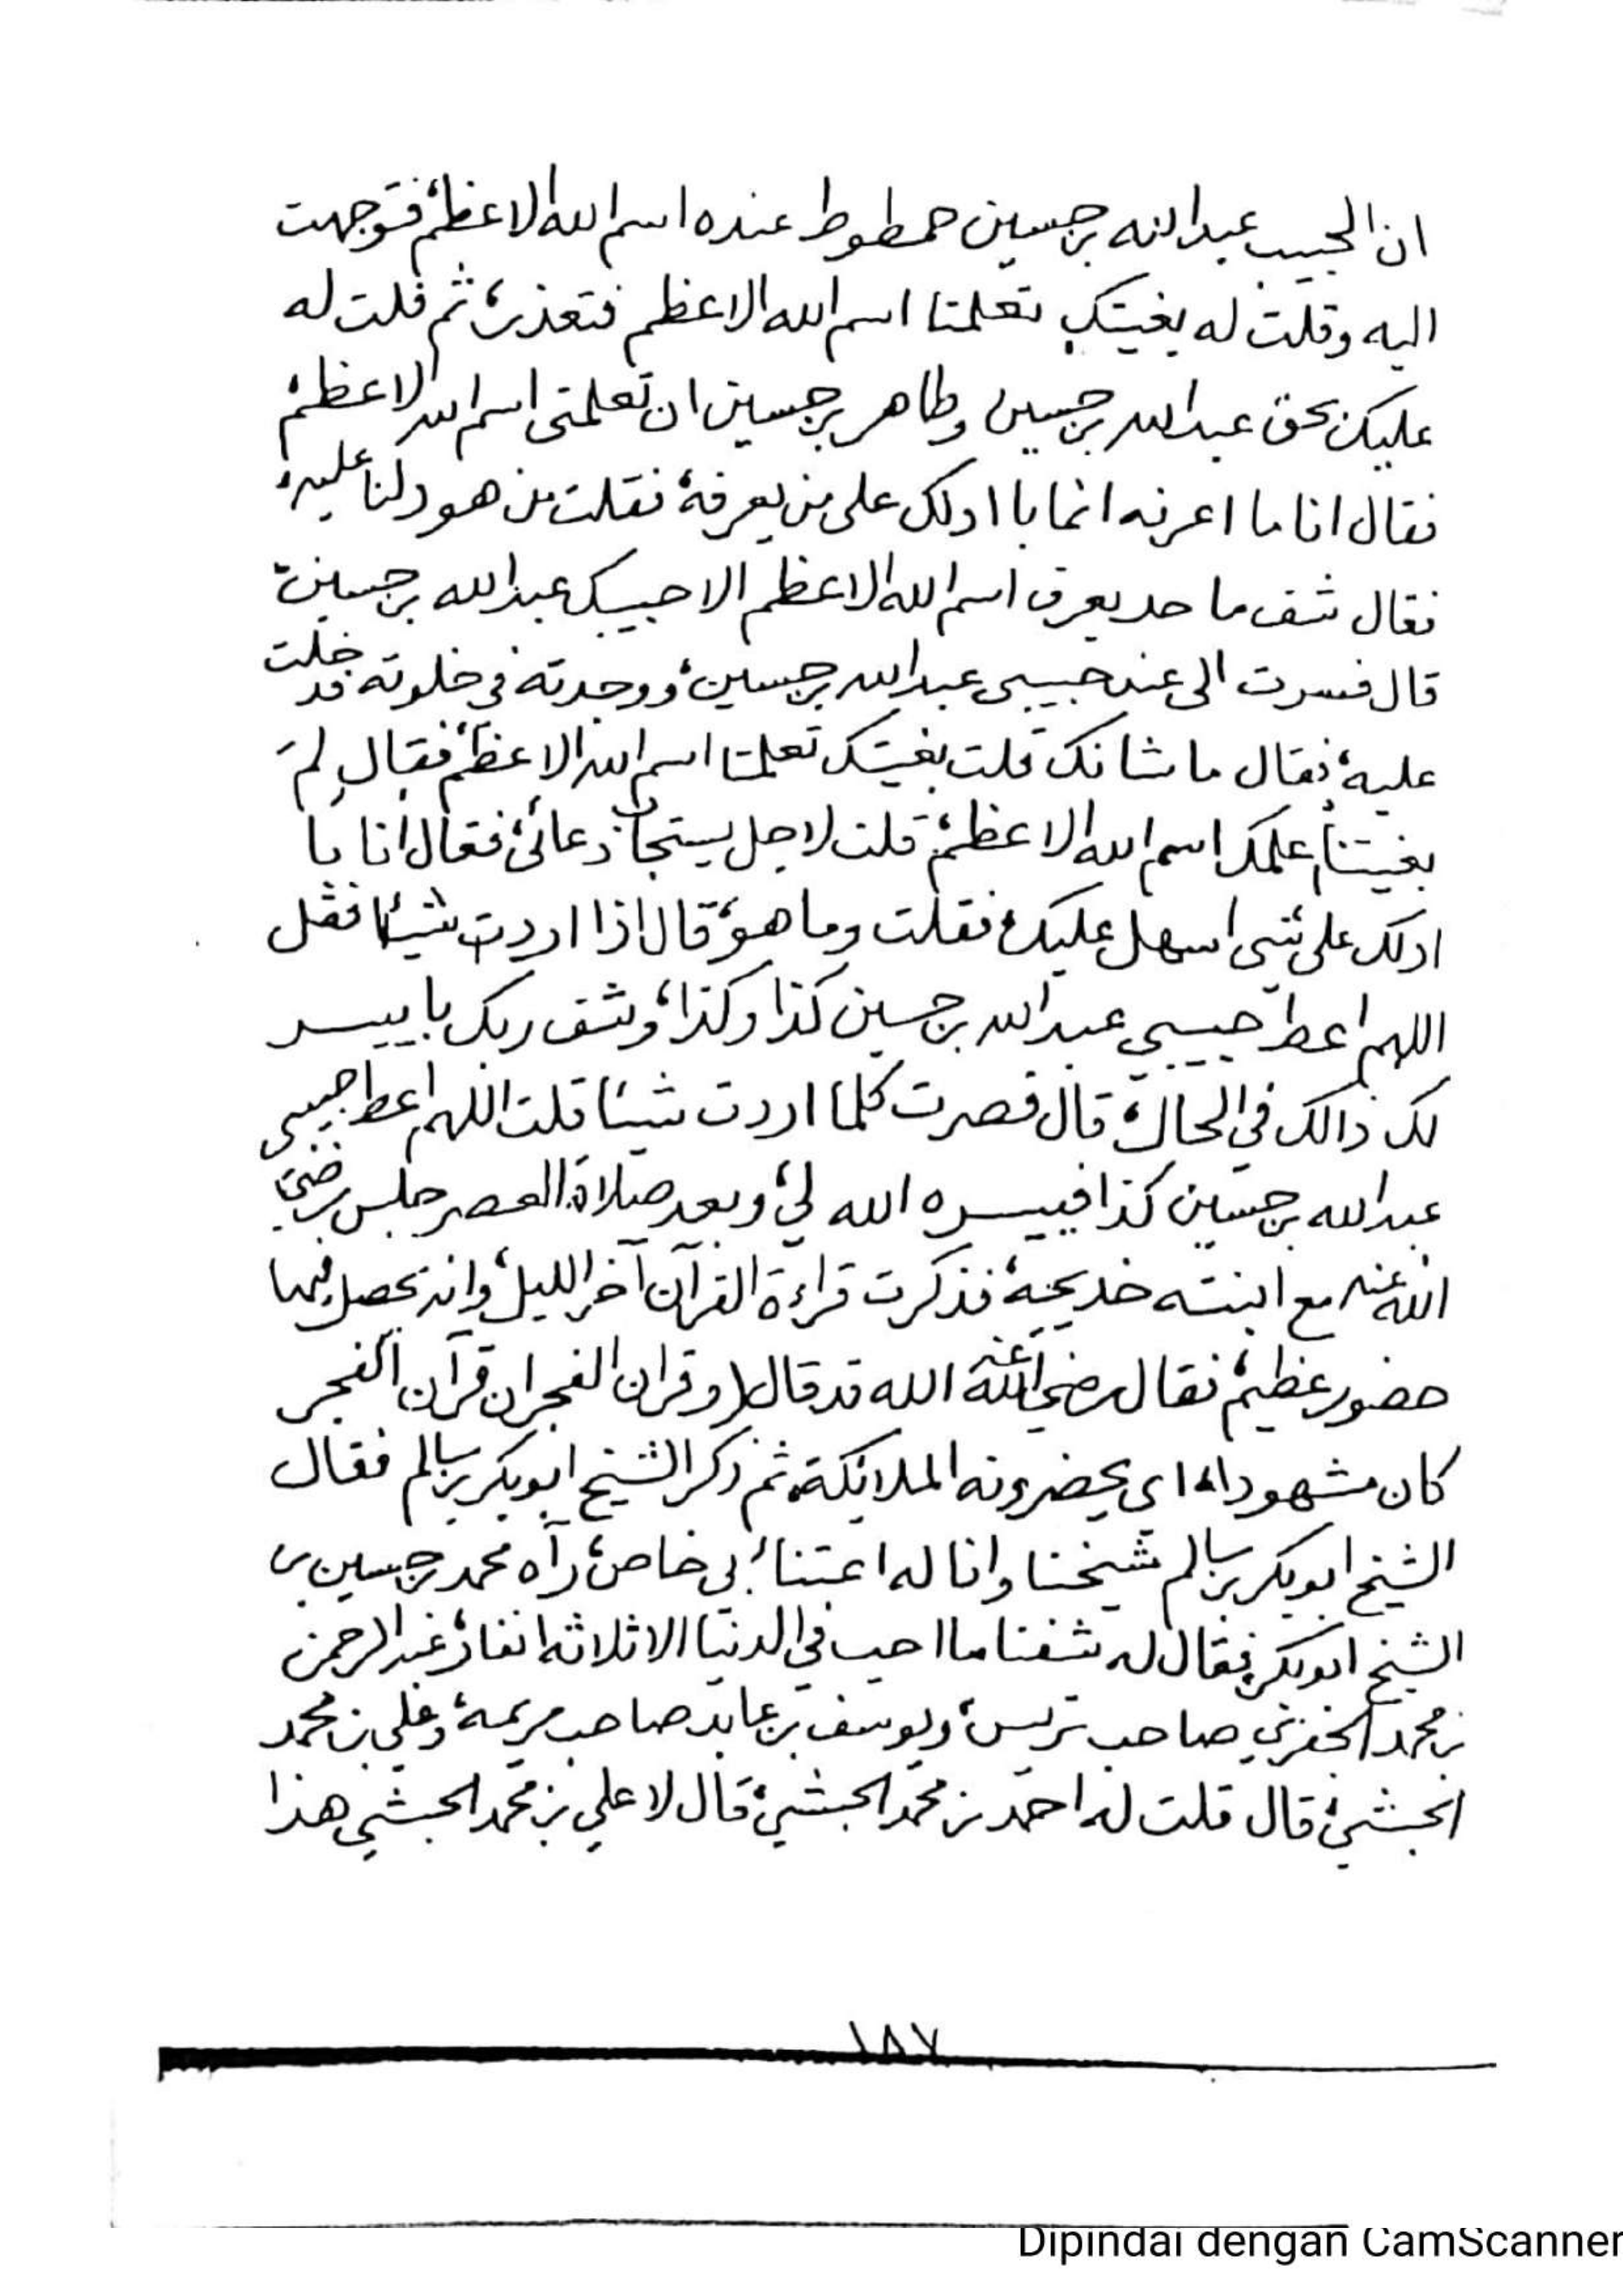 ان الحبيب عبدالله بن حسين حمطوط عنده اسم الله الاعظم، فتوجهت
اليه وقلت له بغيتك تعلمنا اسم الله الاعظم فتعذر، ثم قلت له
عليك بحق عبدالله بن حسين وطاهر بن حسين ان تعلمنى اسم الله الاعظم،
فقال انا ما اعرفه انما با ادلك على من يعرفه، فقلت من هو دلنا عليه،
فقال شف ما حد يعرف اسم الله الاعظم الا حبيبك عبدالله بن حسين،
قال فسرت الى عند حبيبى عبدالله بن حسين، ووجدته في خلوته قد خلت
عليه، فقال ما شانك قلت بغيتك تعلمنا اسم الله الاعظم، فقال لِمَ
بغيتنا أعلمك اسم الله الاعظم، قلت لاجل يستجاب دعائى، فقال انا با
ادلك على شى اسهل عليك، فقلت وما هو، قال اذا اردت شيئا فقل
اللهم اعط حبيبي عبدالله بن حسين كذا وكذا، وشف ربك با ييسر
لك ذالك في الحال، قال فصرت كلما اردت شيئا قلت اللهم اعط حبيبى
عبدالله بن حسين كذا فييسره الله لي، وبعد صلاة العصر جلس رضي
الله عنه مع ابنته خديجة، فذكرت قراءة القرآن آخر الليل، وانه تحصل فيها
حضور عظيم، فقال رضي الله عنه الله قد قال (وقران الفجر ان قرآن الفجر
كان مشهودا) اى يحضرونه الملائكة، ثم ذكر الشيخ ابوبكر بن سالم فقال
الشيخ ابوبكر بن سالم شيخنا وانا له اعتناء بي خاص، رآه محمد بن حسين بن
الشيخ ابوبكر، فقال له شفنا ما احب في الدنيا الا ثلاثه انفار، عبدالرحمن
بن محمد الجفري صاحب تريس، ويوسف بن عابد صاحب مريمه، وعلي بن محمد
الحبشي، قال قلت له احمد بن محمد الحبشي، قال لا علي بن محمد الحبشي هذا
١٨٧
Dipindai dengan CamScanner